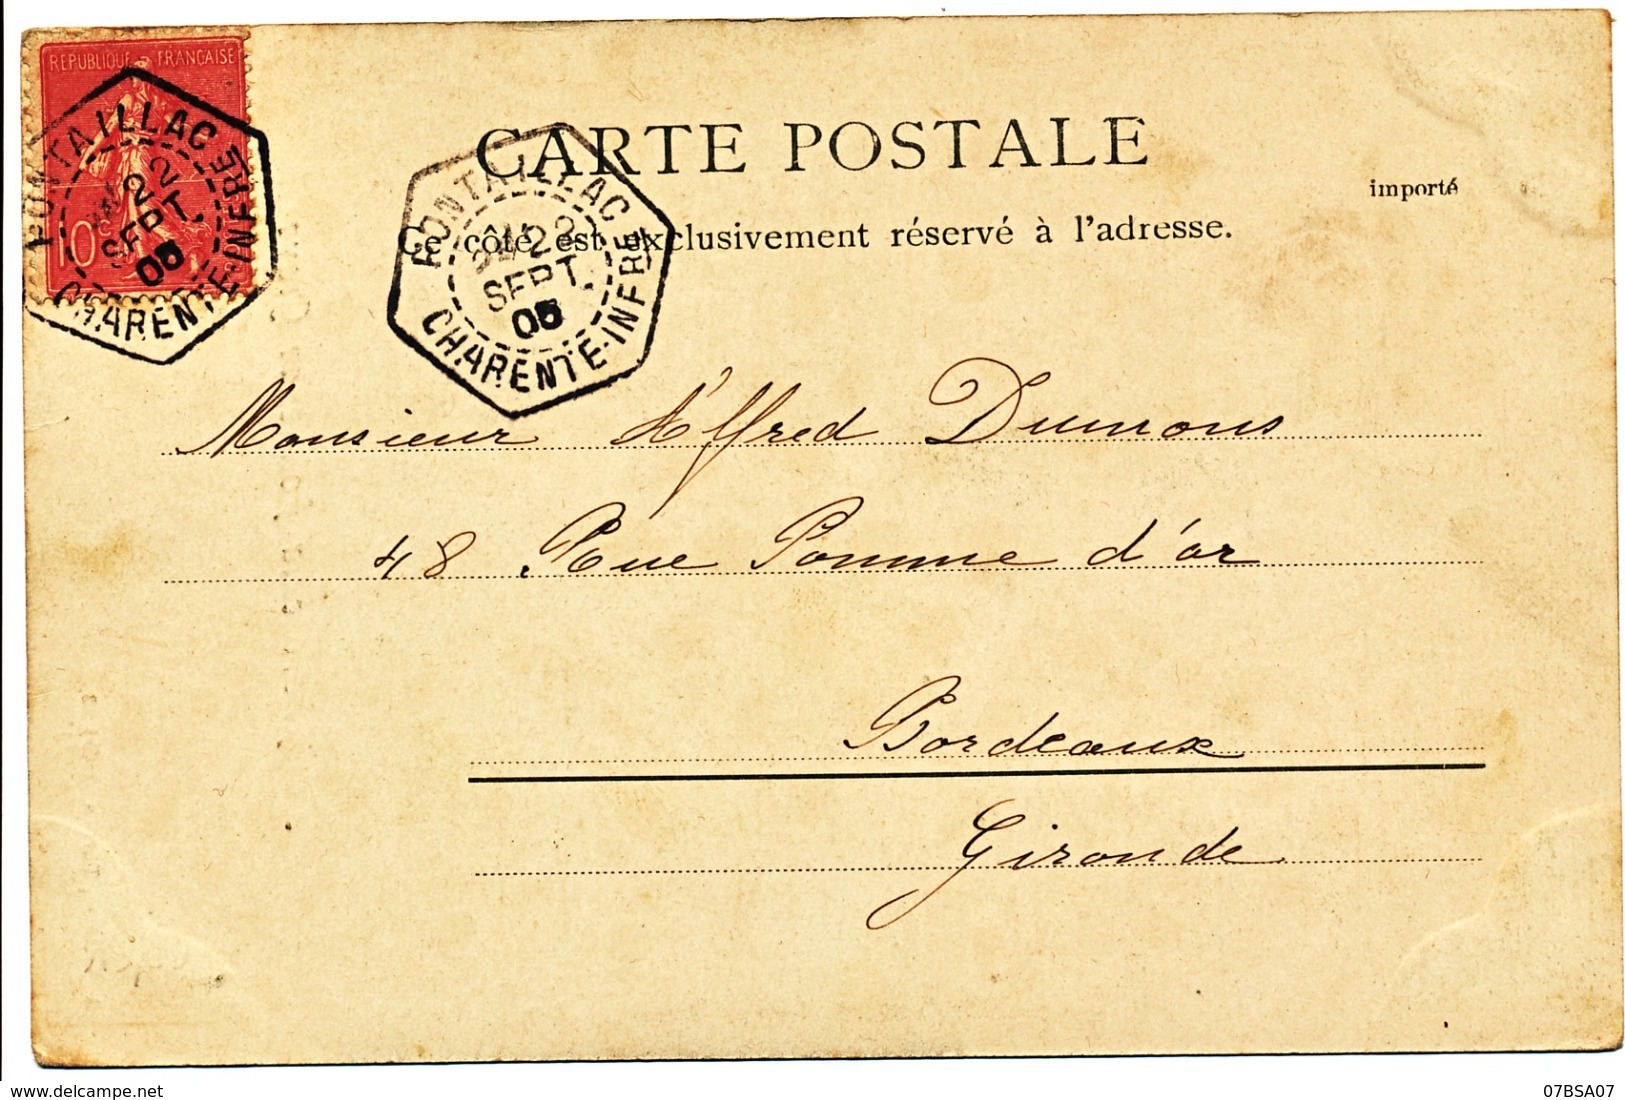 REPUBLIQUE FRANÇAISE
10c
PONTAILLAC
22
SEPT.
05
CHARENTE-INFRE
CARTE POSTALE
importé
Ce côté est exclusivement réservé à l'adresse.
PONTAILLAC
22
SEPT.
05
CHARENTE-INFRE
Monsieur Alffred Dumons
48 Rue Pomme d'or
Bordeaux
Gironde
www.delcampe.net
07BSA07